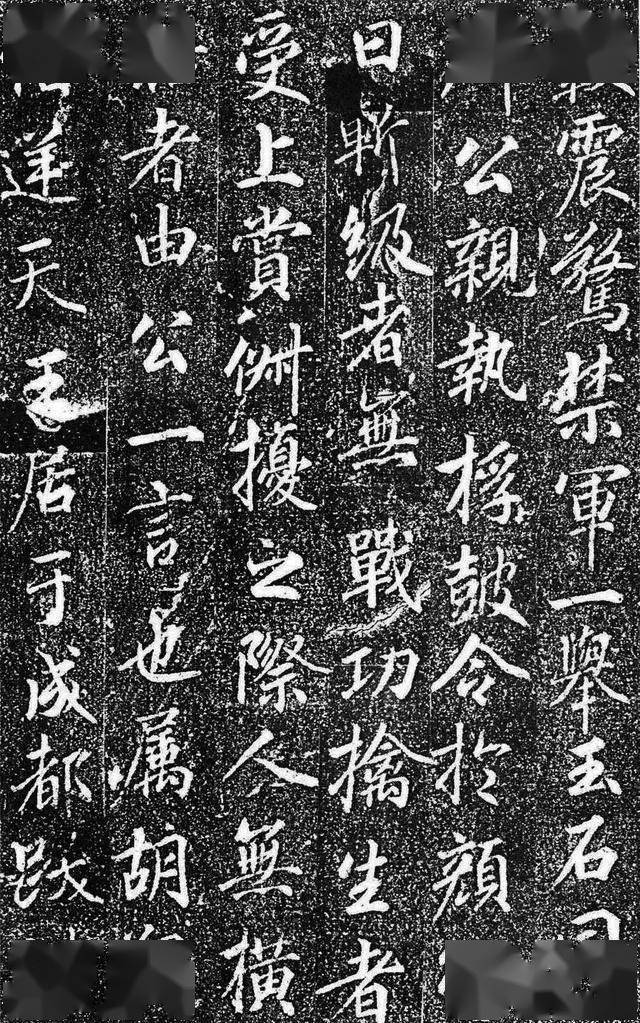 震驚禁軍一舉玉石
公親執桴鼓令於顏
曰斬級者無戰功擒生者
受上賞俶擾之際人無橫
者由公一言也属胡
逆天王居于成都跋